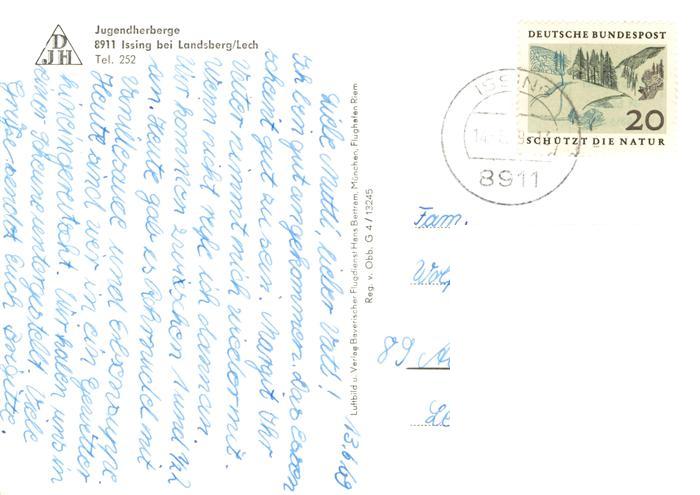 Jugendherberge
8911 Issing bei Landsberg/Lech
Tel. 252
DJH
13.6.69
Liebe Mutti, lieber Vati!
Ich bin gut angekommen. Das Essen
scheint gut zu sein. Margit Ihr
Vater nimmt mich wieder mit.
Wenn nicht rufe ich dann an.
Wir kommen zwischen 1 und 1/2 2
an. Heute gab es Rohrnudel mit
Vanillesauce und Erbsensuppe.
Heute sind wir in ein Gewitter
hineingeradelt. Wir haben uns in
einer Scheune untergestellt. Viele
Grüße sendet Euch Brigitte.
Luftbild u. Verlag Bayerischer Flugdienst Hans Bertram, München, Flughafen Riem
Reg. v. Obb. G 4 / 13245
DEUTSCHE BUNDESPOST
20
SCHÜTZT DIE NATUR
ISSING
8911
Fam.
89 A